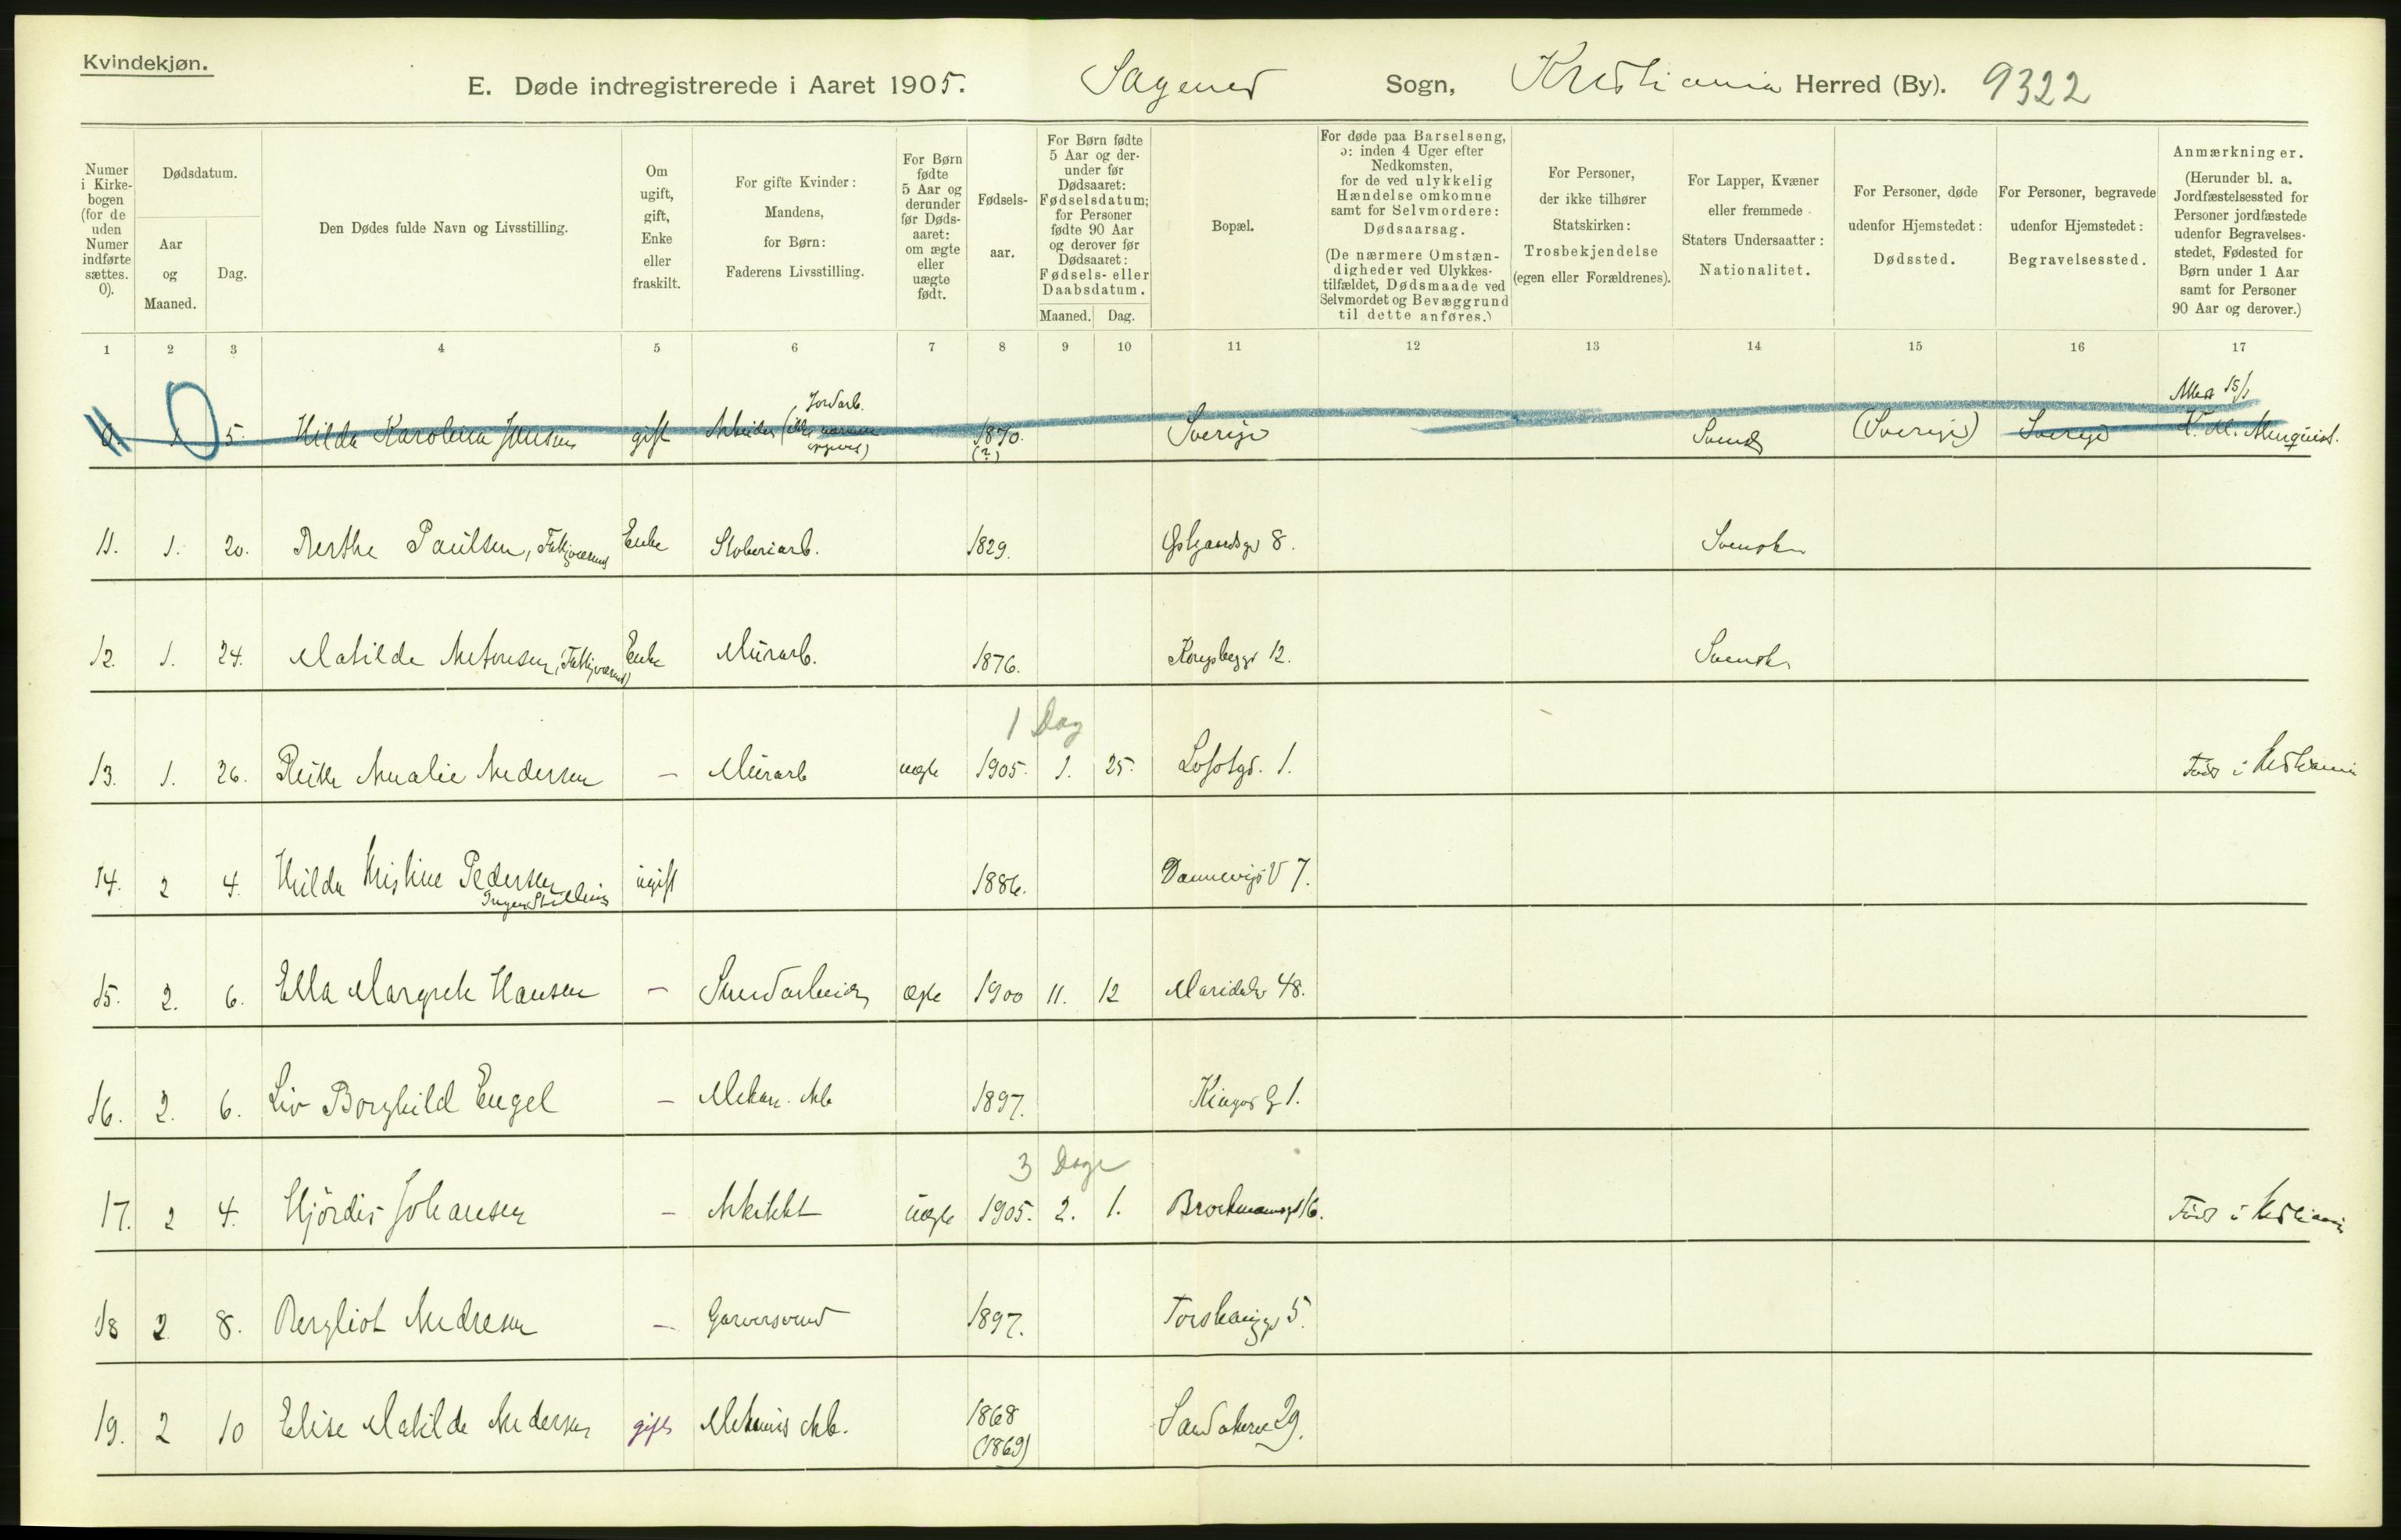 Kvindekjøn.
E. Døde indregistrerede i Aaret 1905. Sagenes Sogn, Kristiania Herred (By). 9322
Numer i Kirkebogen (for de uden Numer indførte sættes. 0).
Dødsdatum.
Aar og Maaned.
Dag.
Den Dødes fulde Navn og Livsstilling.
Om ugift, gift, Enke eller fraskilt.
For gifte Kvinder: Mandens, for Børn: Faderens Livsstilling.
For Børn fødte 5 Aar og derunder før Dødsaaret: om ægte eller uægte født.
Fødselsaar.
For Børn fødte 5 Aar og derunder før Dødsaaret: Fødselsdatum; for Personer fødte 90 Aar og derover før Dødsaaret: Fødsels- eller Daabsdatum.
Maaned. Dag.
Bopæl.
For døde paa Barselseng, ɔ: inden 4 Uger efter Nedkomsten, for de ved ulykkelig Hændelse omkomne samt for Selvmordere: Dødsaarsag.
(De nærmere Omstændigheder ved Ulykkestilfældet, Dødsmaade ved Selvmordet og Bevæggrund til dette anføres.)
For Personer, der ikke tilhører Statskirken: Trosbekjendelse (egen eller Forældrenes).
For Lapper, Kvæner eller fremmede Staters Undersaatter: Nationalitet.
For Personer, døde udenfor Hjemstedet: Dødssted.
For Personer, begravede udenfor Hjemstedet: Begravelsessted.
Anmærkninger.
(Herunder bl. a. Jordfæstelsessted for Personer jordfæstede udenfor Begravelsesstedet, Fødested for Børn under 1 Aar samt for Personer 90 Aar og derover.)
1 2 3 4 5 6 7 8 9 10 11 12 13 14 15 16 17
Jordarb. 15/1
0. 1 5. Hilda Karolina Jonsen gift Arbeider (ikke 1870. (?) Sverige Svensk (Sverige) Sverige
11. 1. 20. Berthe Paulsen, Fattigvæsend Enke Støberiarb. 1829. 8. Svensk
12. 1. 24. Matilde Antonsen, (Fattigvæsend) Enke Murarb. 1876. 12. Svensk
1 Dag
13. 1. 26. Amalie Andersen – Murarb uægte 1905. 1. 25. Lofotgd. 1. Født i Kristiania
14. 2 4. Hilda Kristine Pedersen Ingen Stilling ugift 1886. Dannevigs V 7.
15. 2. 6. Ella Margrete Hansen – ægte 1900 11. 12 Maridalsv 48.
16. 2. 6. Liv Borghild Engel – Mekan. Arb 1897. Kingos G 1.
3 Dage
17. 2 4. Hjördis Johansen – Arkitekt uægte 1905. 2. 1. Brochmannsgd 16. Født i Kristiania
18 2 8. Bergliot Andresen – Garversvend 1897. Torshauggd 5.
19. 2 10 Elise Matilde Andersen gift Mekanis Arb. 1868 (1869) Sandakerv 29.